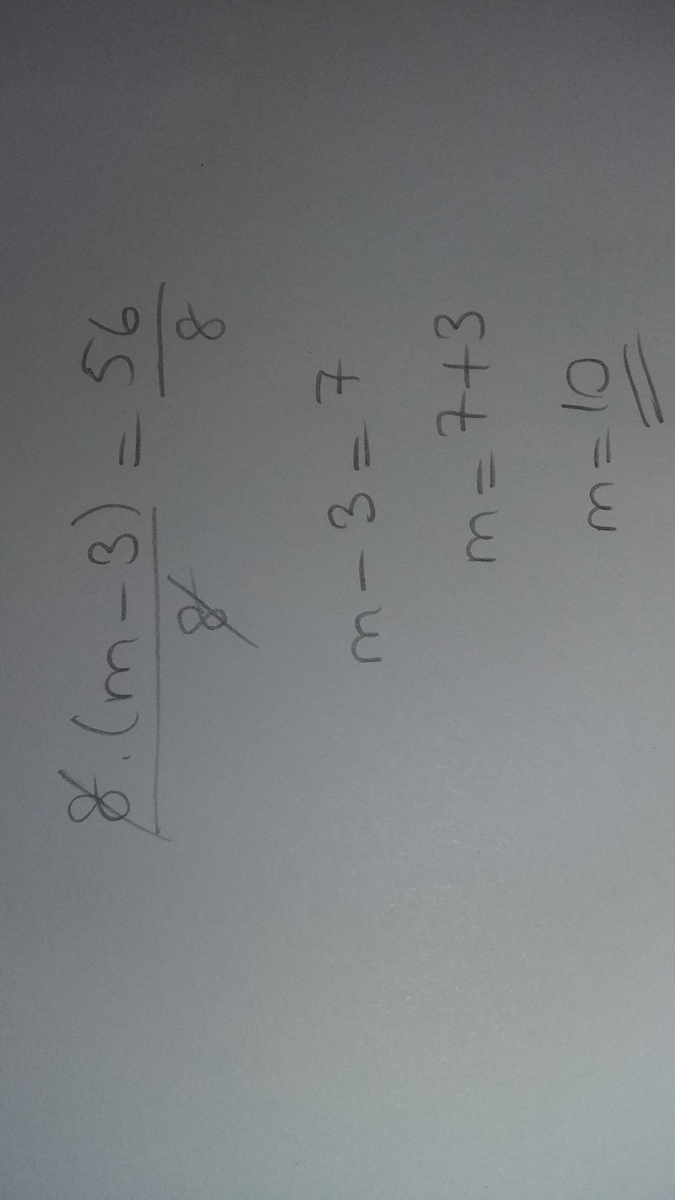 8.(m-3) = 56
8 8
m-3 = 7
m = 7+3
m = 10